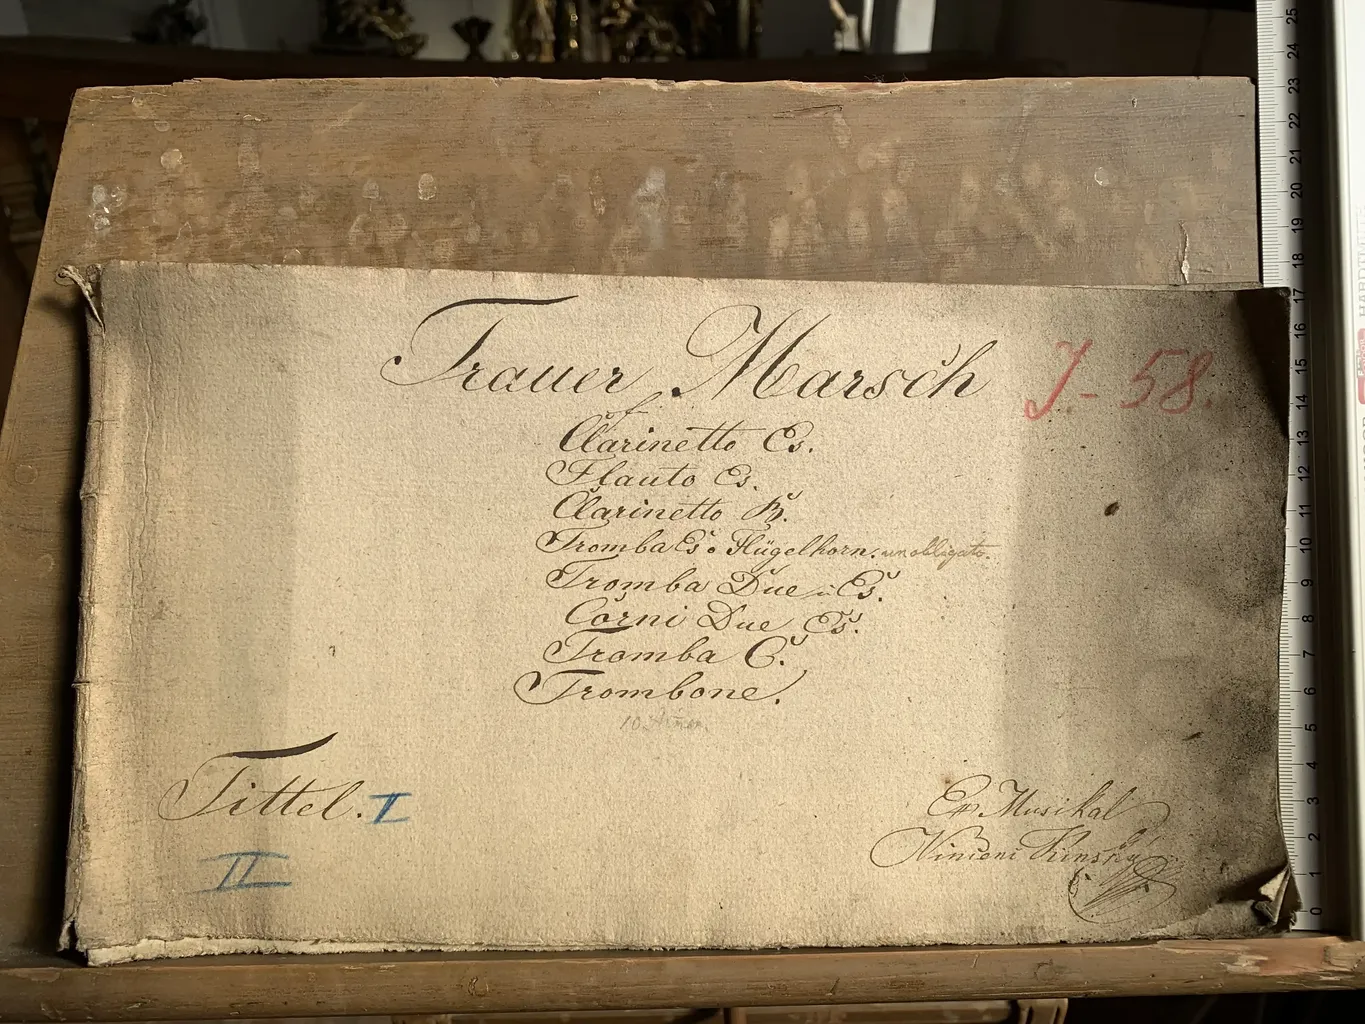 Trauer Marsch J-58.
Clarinetto Es.
Flauto Es.
Clarinetto B.
Tromba Es o Flügelhorn. un obligato.
Tromba Due in Es.
Corni Due Es.
Tromba C.
Trombone.
10
Tittel. I
II
Ex Musikal
25
24
23
22
21
20
19
18
17
16
15
14
13
12
11
10
9
8
7
6
5
4
3
2
1
0